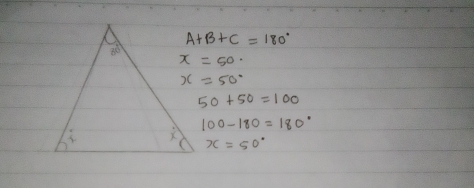 80°
x°
x°
A+B+C = 180°
x = 50.
x = 50°
50 + 50 = 100
100 - 180 = 180°
x = 50°